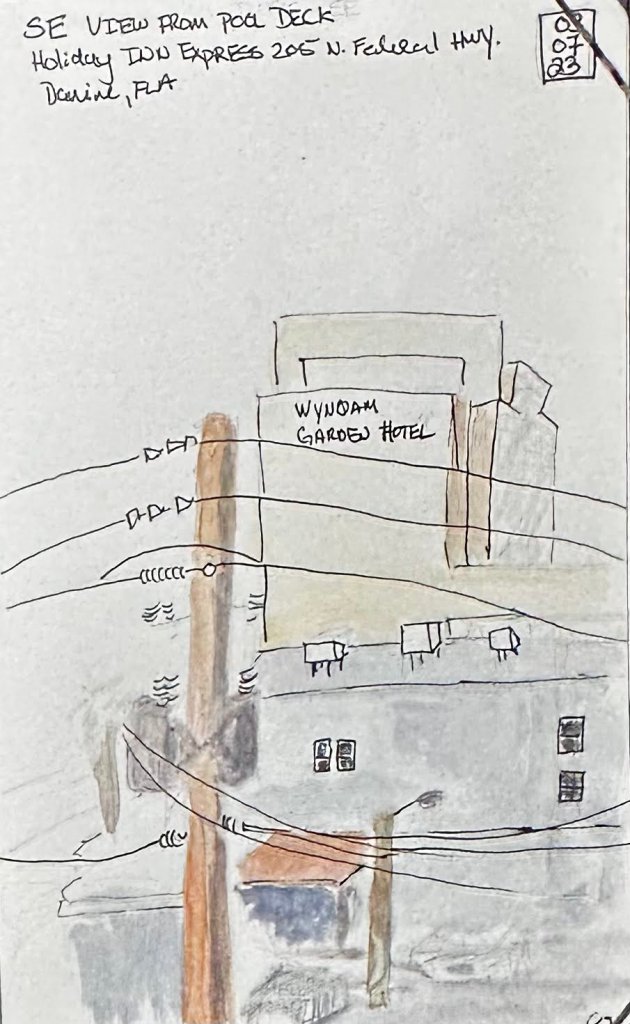 SE VIEW FROM POOL DECK
Holiday INN EXPRESS 205 N. Federal Hwy.
Dania, FLA
03
07
23
WYNDAM
GARDEN HOTEL